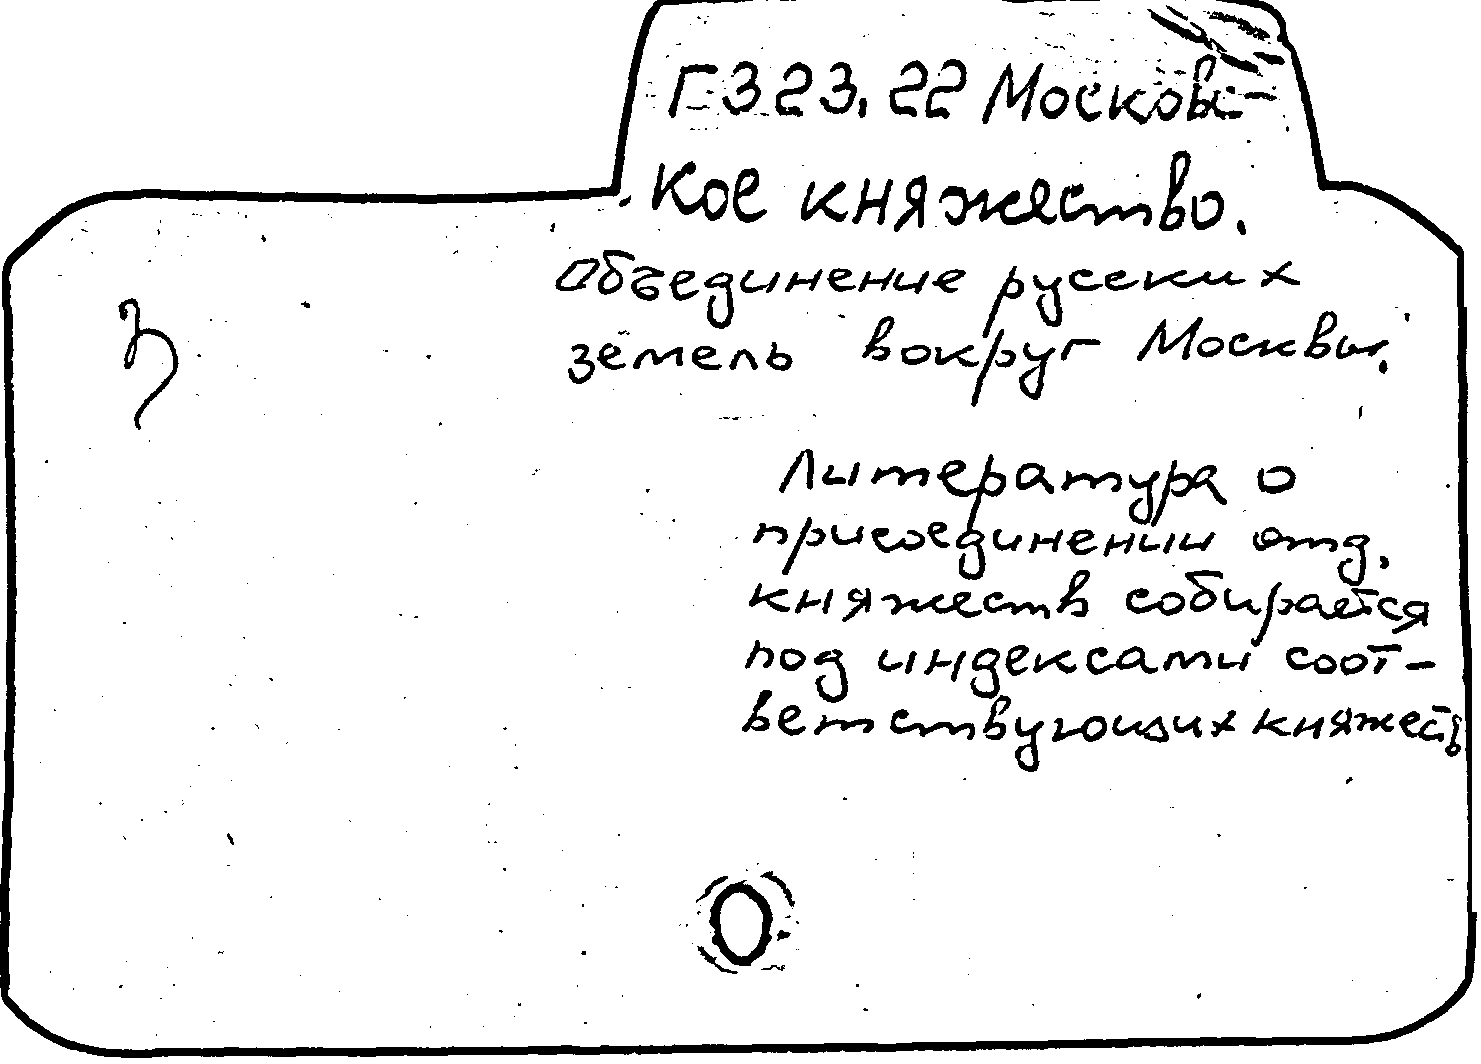 Г3 23.22 Московс-
кое княжество.
Объединение русских
земель вокруг Москвы.
Литература о
присоединении отд.
княжеств собирается
под индексами соот-
ветствующих княжеств